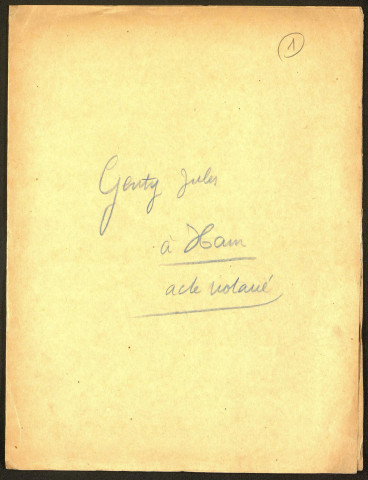 1
Genty Jules
à Ham
acte notarié